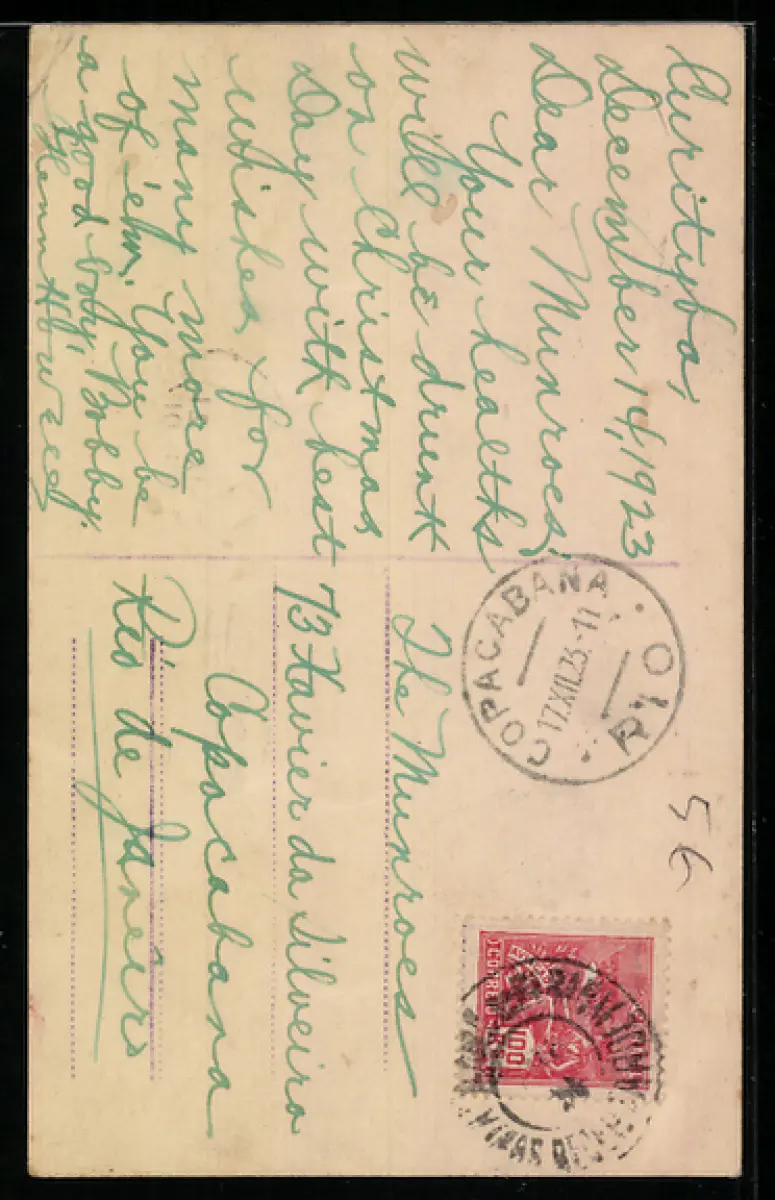 Curityba,
December 14, 1923
Dear Munroes;
Your healths
will be drunk
on Christmas
Day with best
wishes for
many more
of 'em. You be
a good boby, Bobby.
Howard
COPACABANA
17.XII.23.-11
RIO
56
The Munroes
73 Xavier da Silveira
Copacabana
Rio de Janeiro
CORREIO
100